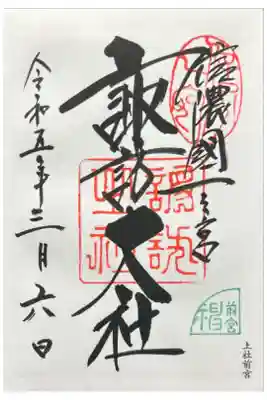 信濃國一之宮
諏訪大社
令和五年三月六日
前宮
上社前宮